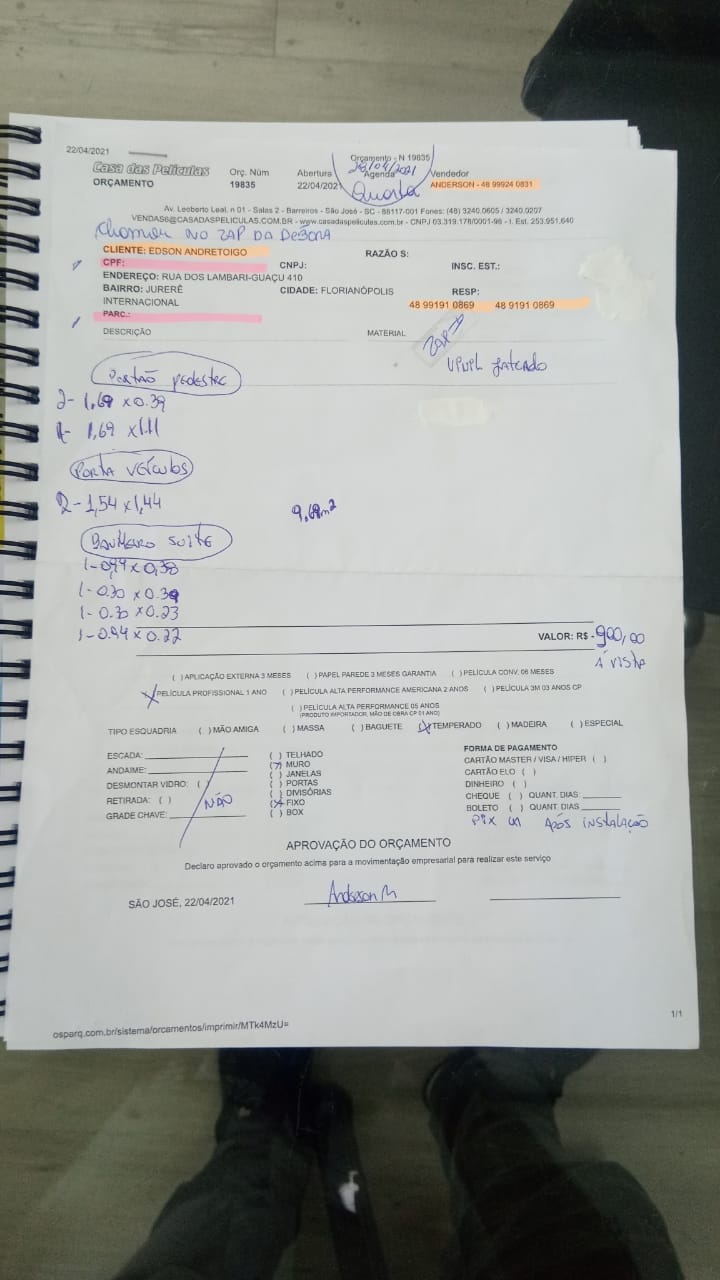 22/04/2021
Orçamento - N 19835
Casa das Películas Orç. Núm Abertura Agenda Vendedor
28/04/2021
ORÇAMENTO 19835 22/04/2021 Quarta ANDERSON - 48 99924 0831
Av. Leoberto Leal, n 01 - Salas 2 - Barreiros - São José - SC - 88117-001 Fones: (48) 3240.0605 / 3240.0207
VENDAS6@CASADASPELICULAS.COM.BR - www.casadaspeliculas.com.br - CNPJ 03.319.178/0001-96 - I. Est. 253.951.640
Chamar NO ZAP DA DEBORA
CLIENTE: EDSON ANDRETOIGO RAZÃO S:
CPF: CNPJ: INSC. EST.:
ENDEREÇO: RUA DOS LAMBARI-GUAÇU 410
BAIRRO: JURERÊ CIDADE: FLORIANÓPOLIS RESP:
INTERNACIONAL 48 99191 0869 48 9191 0869
PARC.:
DESCRIÇÃO MATERIAL ZAP
Jateado
PORTÃO PEDESTRE
2- 1,69 x 0.39
1- 1,69 x 1.11
PORTA VEÍCULOS
2- 1,54 x 1,44
9,68m²
BANHEIRO SUITE
1- 0,94 x 0,38
1- 0.30 x 0.39
1- 0.30 x 0.23
1- 0.94 x 0.22
VALOR: R$ - 900,00
Á VISTA
( ) APLICAÇÃO EXTERNA 3 MESES ( ) PAPEL PAREDE 3 MESES GARANTIA ( ) PELÍCULA CONV. 06 MESES
(X) PELÍCULA PROFISSIONAL 1 ANO ( ) PELÍCULA ALTA PERFORMANCE AMERICANA 2 ANOS ( ) PELÍCULA 3M 03 ANOS CP
( ) PELÍCULA ALTA PERFORMANCE 05 ANOS
(PRODUTO IMPORTADOR, MÃO DE OBRA CP 01 ANO)
TIPO ESQUADRIA ( ) MÃO AMIGA ( ) MASSA ( ) BAGUETE (X) TEMPERADO ( ) MADEIRA ( ) ESPECIAL
ESCADA: ( ) TELHADO FORMA DE PAGAMENTO
ANDAIME: (7) MURO CARTÃO MASTER / VISA / HIPER ( )
DESMONTAR VIDRO: ( ) ( ) JANELAS CARTÃO ELO ( )
RETIRADA: ( ) NÃO ( ) PORTAS DINHEIRO ( )
GRADE CHAVE: ( ) DIVISÓRIAS CHEQUE ( ) QUANT. DIAS:
(X) FIXO BOLETO ( ) QUANT. DIAS
( ) BOX PIX APÓS INSTALAÇÃO
APROVAÇÃO DO ORÇAMENTO
Declaro aprovado o orçamento acima para a movimentação empresarial para realizar este serviço
SÃO JOSÉ, 22/04/2021 Anderson M
1/1
osparq.com.br/sistema/orcamentos/imprimir/MTk4MzU=